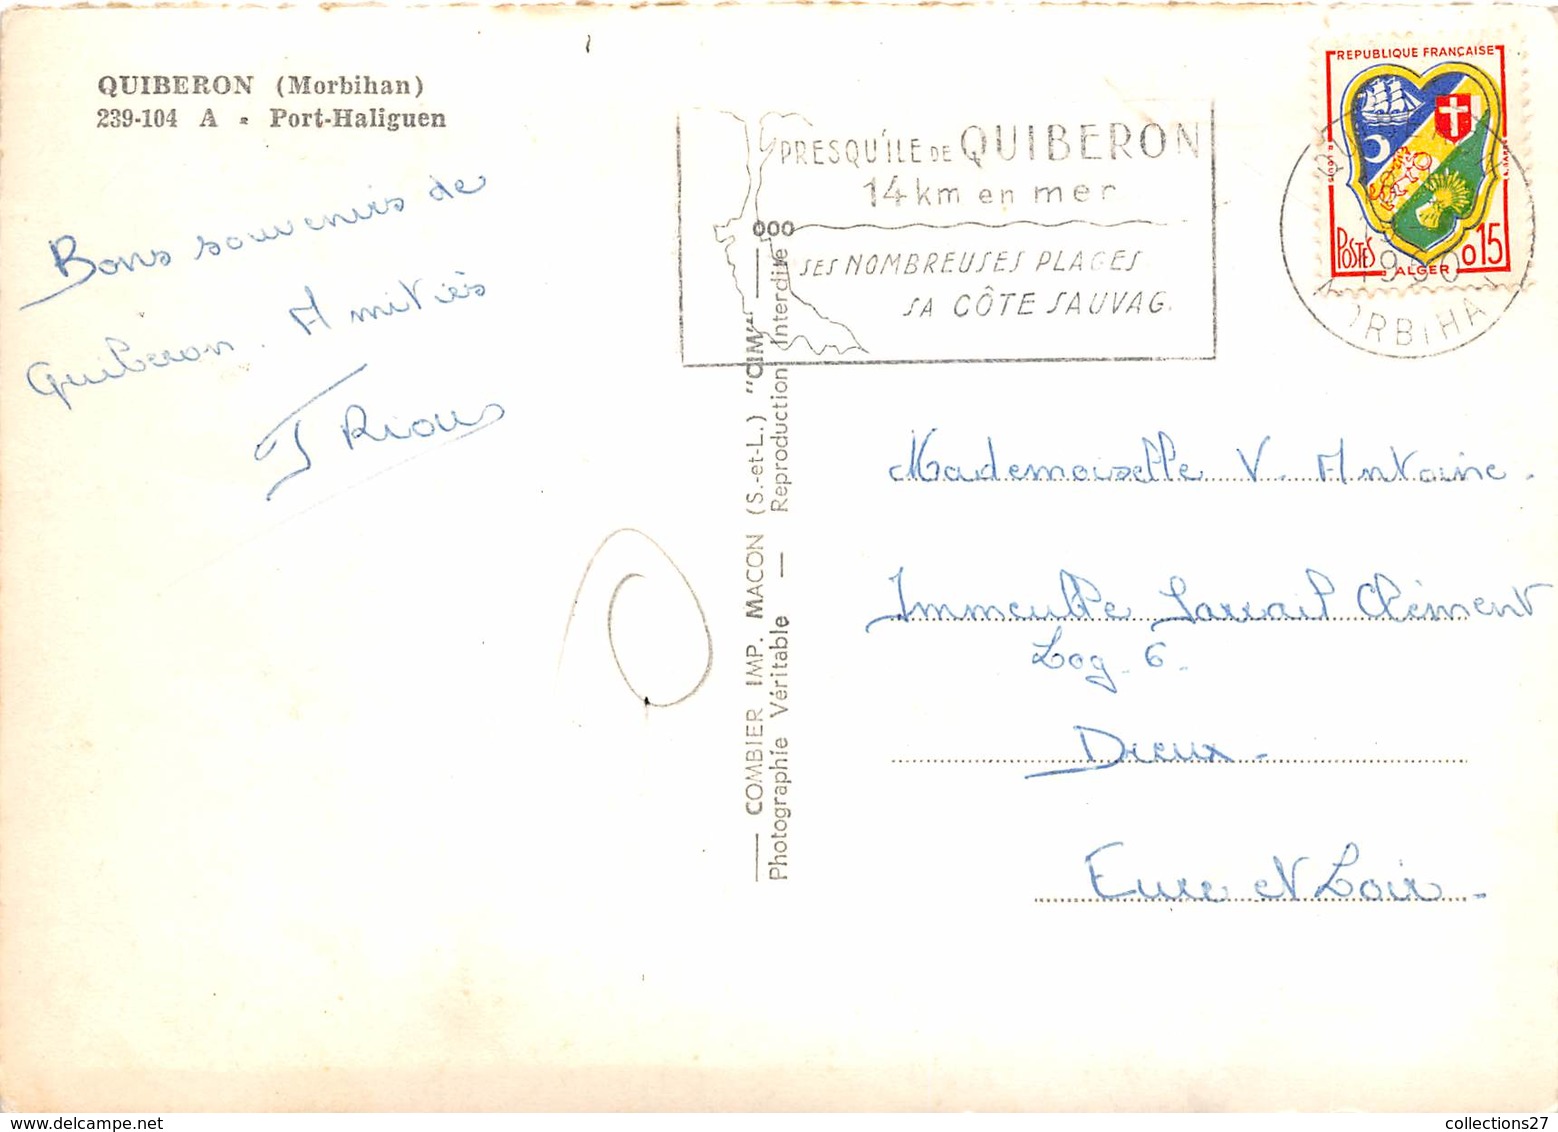 QUIBERON (Morbihan)
239-104 A - Port-Haliguen
Bons souvenirs de
Quiberon. Amitiés
J Riou
PRESQU'ILE DE QUIBERON
14 km en mer
SES NOMBREUSES PLAGES
SA CÔTE SAUVAG
REPUBLIQUE FRANÇAISE
POSTES
ALGER
0,15
MORBIHA
— COMBIER IMP. MACON (S.-et-L.) "CIM" —
Photographie Véritable — Reproduction Interdite
Mademoiselle V. Antoine.
Immeuble Larrail Clément
Log. 6.
Dreux.
Eure et Loir.
collections27